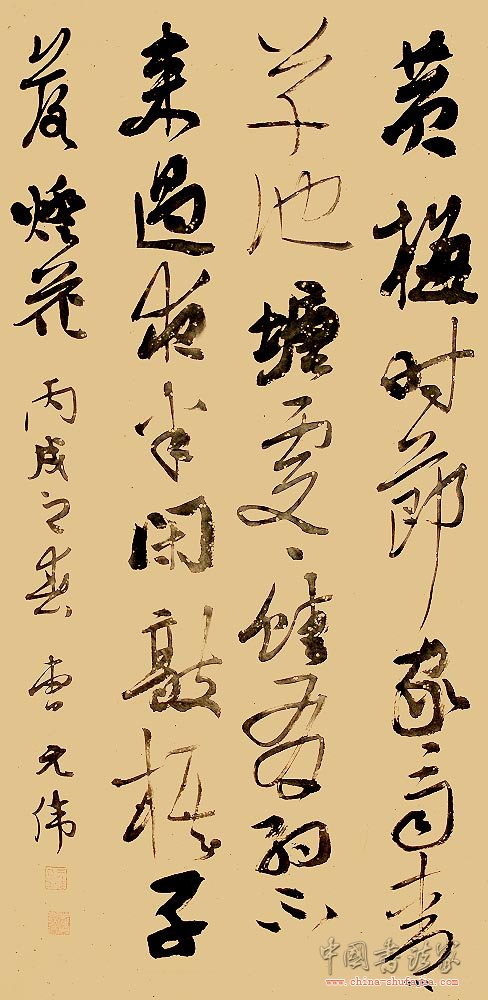 黄梅时節家〻雨青
草池塘處〻蛙有约不
来過夜半閑敲棋子
落燈花 丙戌之春 曹元伟
中國書法家
www.china-shufajia.com